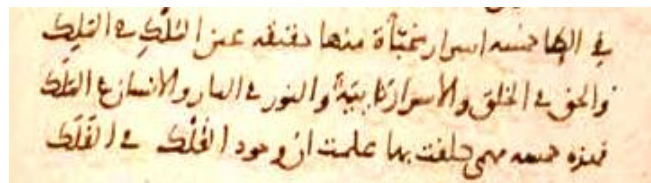 في الها خمسه اسرار مخبأة منها دقيقه عين الملك في الملك
والحق في الخلق والأسرار نابيَةً والنور في النار والانسان في الفلك
فهذه خمسه مهمى حلفت بها علمت ان وجود الفُلْك في الفَلَك